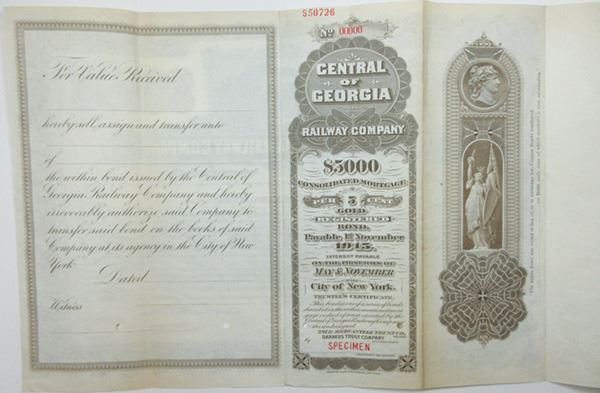 For Value Received
hereby sell, assign and transfer unto
of
the within bond issued by the Central of
Georgia Railway Company and hereby
irrevocably authorize said Company to
transfer said bond on the books of said
Company at its agency in the City of New
York.
Dated
Witness
S50726
No 00000
CENTRAL
OF
GEORGIA
RAILWAY COMPANY
$5000
CONSOLIDATED MORTGAGE
PER 5 CENT
GOLD
REGISTERED
BOND.
Payable, 1st November
1945.
INTEREST PAYABLE
ON THE FIRST DAYS OF
MAY & NOVEMBER
City of New York.
TRUSTEE'S CERTIFICATE.
THE MERCANTILE TRUST CO.
BANKERS TRUST COMPANY
By
SPECIMEN